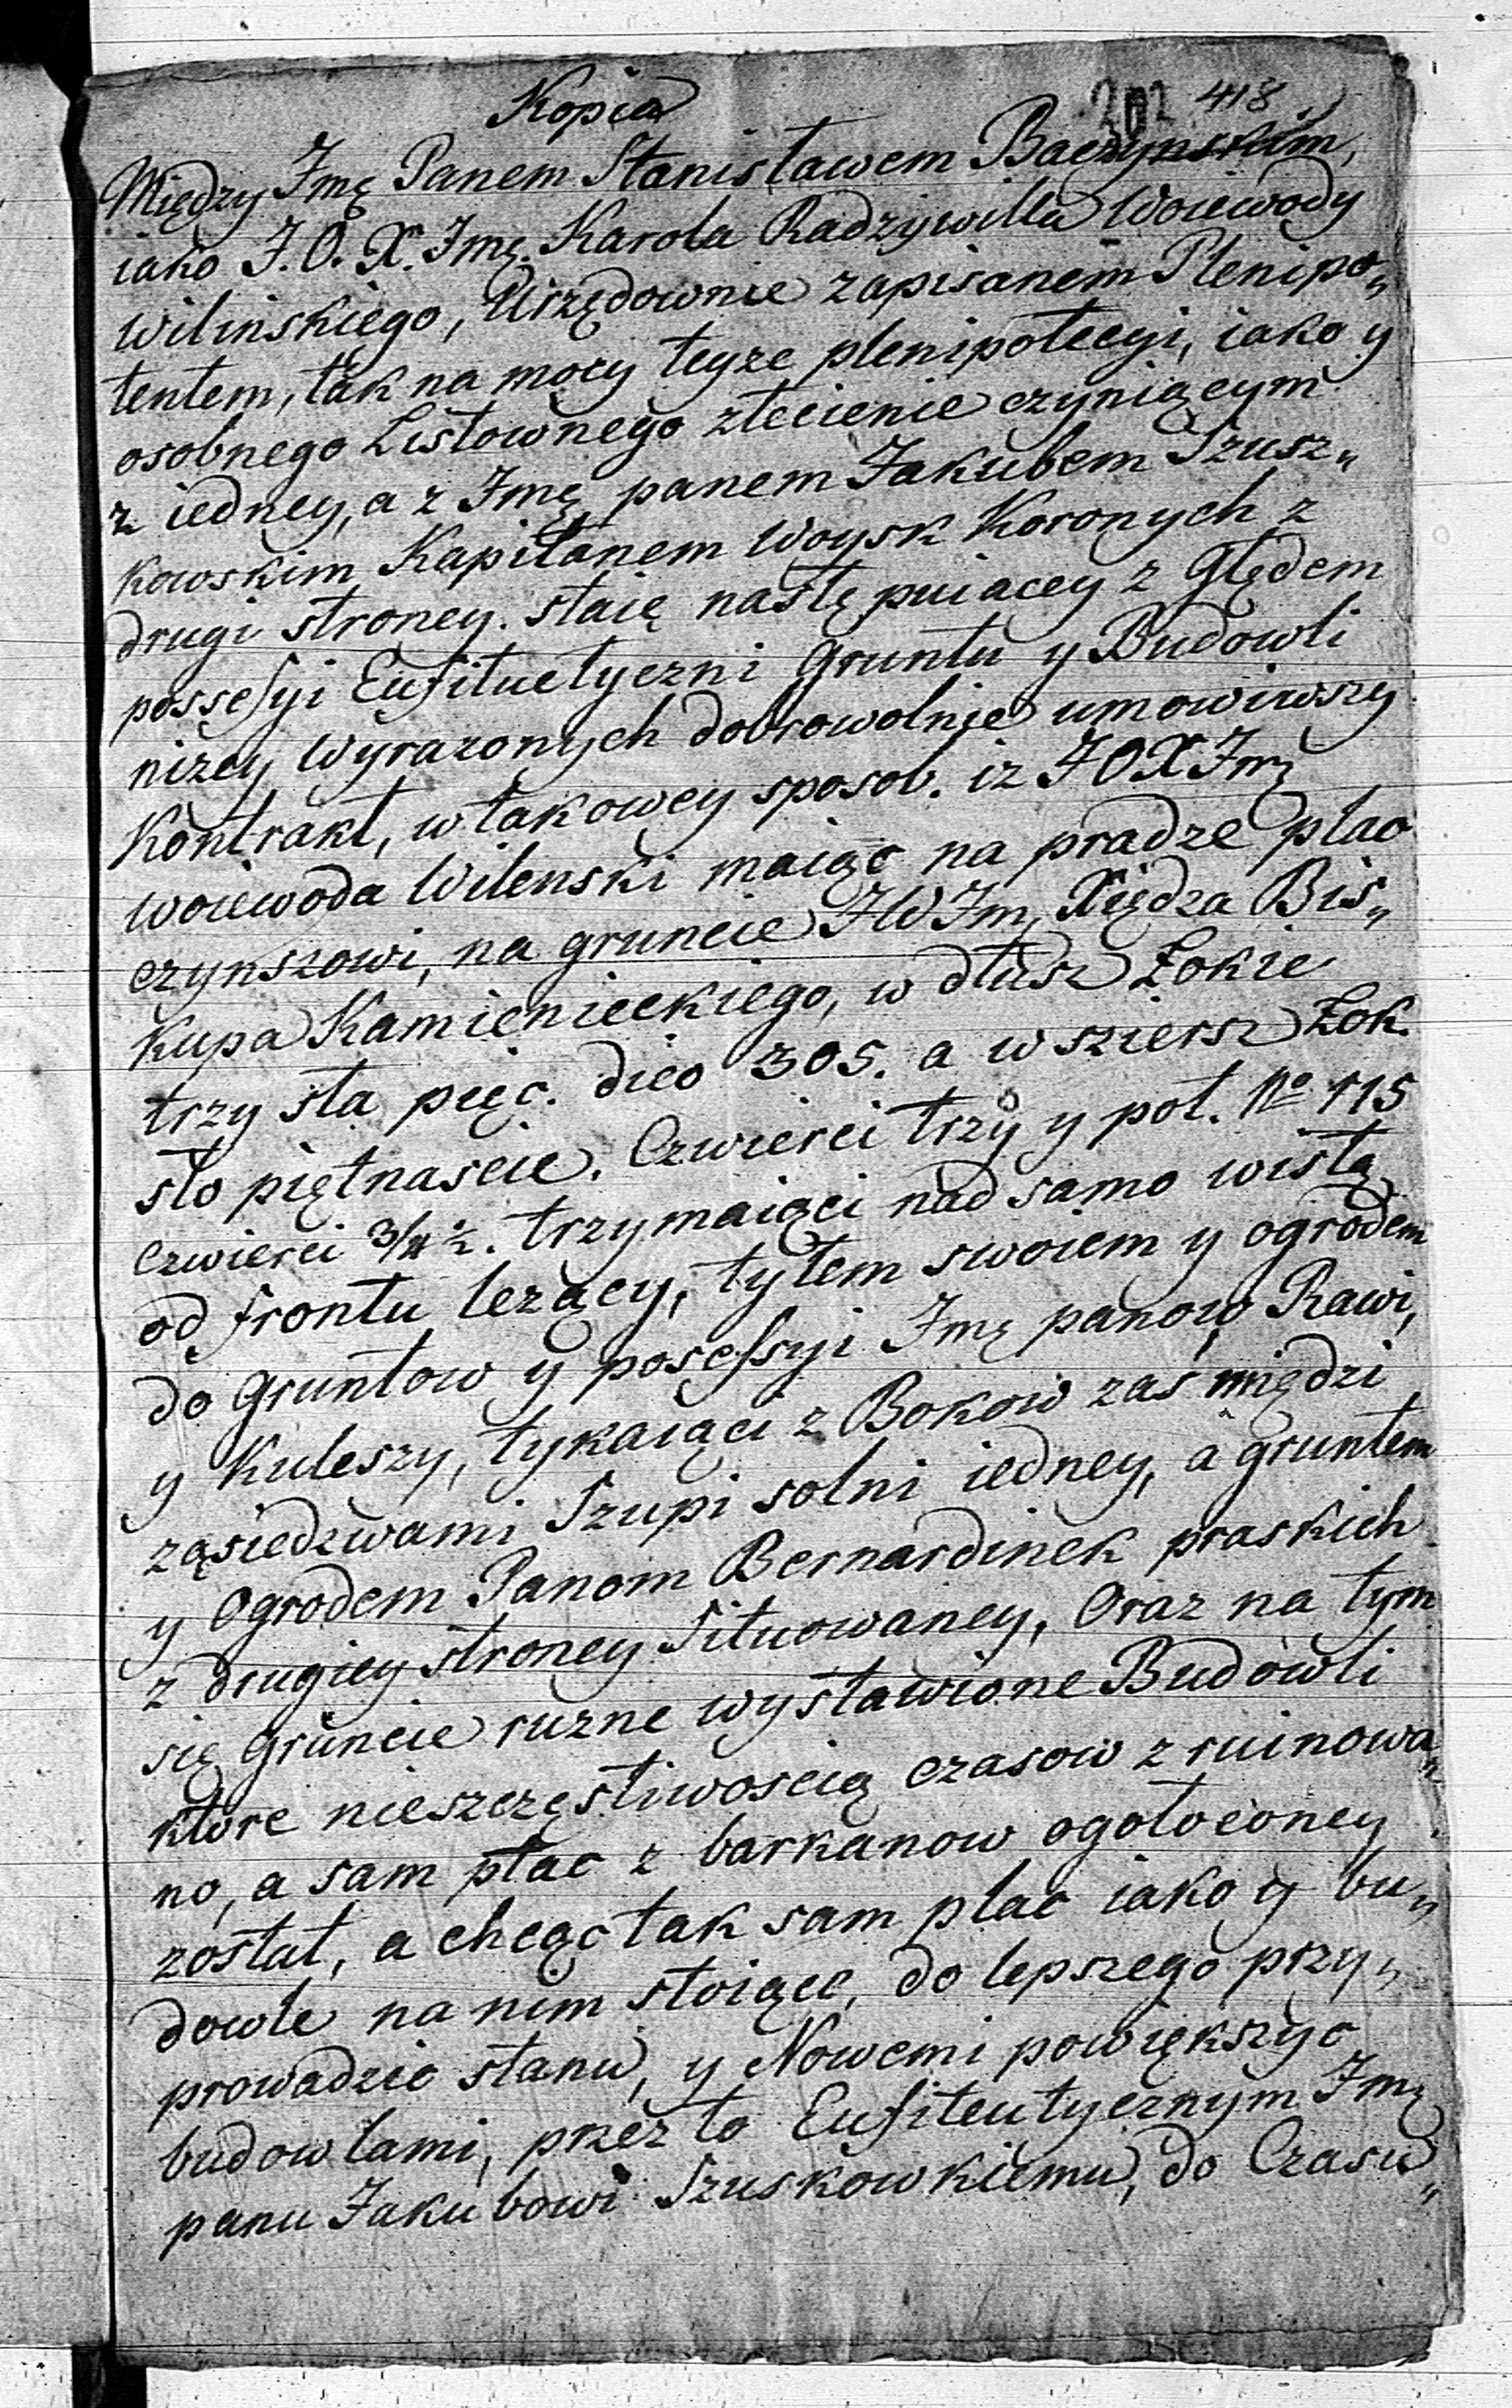 Kopia
202 418
Między Jmę Panem Stanisławem Baczynskim,
iako J. O. X. Jmę. Karola Radzywilla Woiewody
Wilinskiego, Urzędownie zapisanem Plenipo„
tentem, tak na mocy teyze plenipotecyi, iako y
osobnego Listownego zlecienie czyniącym
z iedney, a z Jmę panem Jakubem Szusz„
kowskim Kapitanem Woysk Koronych z
drugi stroney. staię nastę puiacey z Ględem
possessyi Eufituetyczni Gruntu y Budowli
nizey wyrazonych dobrowolnie umowiwszy
Kontrakt, w takowey sposob. iz JOX Jmę
woiewoda Wilenski maiąc na pradze plac
czynszowi, na gruncie JW Jm, Xiędza Bis„
kupa Kamienieckiego, w dłusz Łokie
trzy sta pięc. dico 305. a w sziersz Łok.
sto piętnascie. Czwierci trzy y pol. No 115
czwierci 3/4 ½. trzymaiąci nad samo wisłą
od frontu lezący, tyłem swoiem y ogrodem
do Gruntow y posessyi Jmę panow Rawi,
y Kuleszy, tykaiąci z Bokow zas międzi
ząsiedzwami Szupi solni iedney, a gruntem
y Ogrodem Panom Bernardinek praskich
z drugiey stroney Situowaney, Oraz na tym
się Gruncie ruzne wystawione Budowli
ktore nieszczęsliwoscią czasow z ruinowa„
no, a sam płac z barkanow ogołoconey
został, a chcąc tak sam plac iako y bu„
dowle na nim stoiące, do lepszego przy„
prowadzic stanu, y Nowemi powiększyc
budowlami, przez to Eufiteutycznym Jmę
panu Jakubowi Szuskowkiemu, do Czasu„